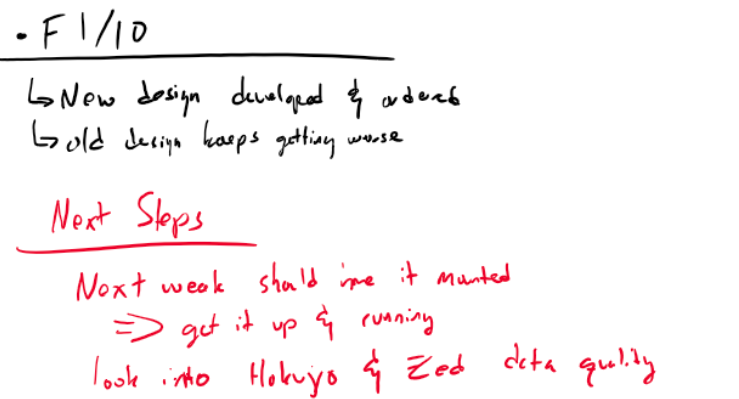 • F1/10
↳ New design developed & ordered
↳ old design keeps getting worse
Next Steps
Next week should have it mounted
=> get it up & running
look into Hokuyo & Zed data quality